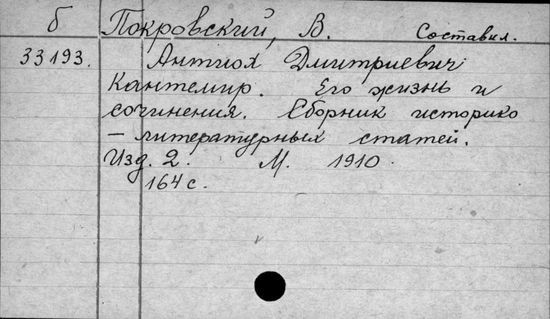 б Покровский, В. Составил.
33193. Антиох Дмитриевич
Кантемир. Его жизнь и
сочинения. Сборник историко
– литературных статей.
Изд. 2. М. 1910.
164 с.